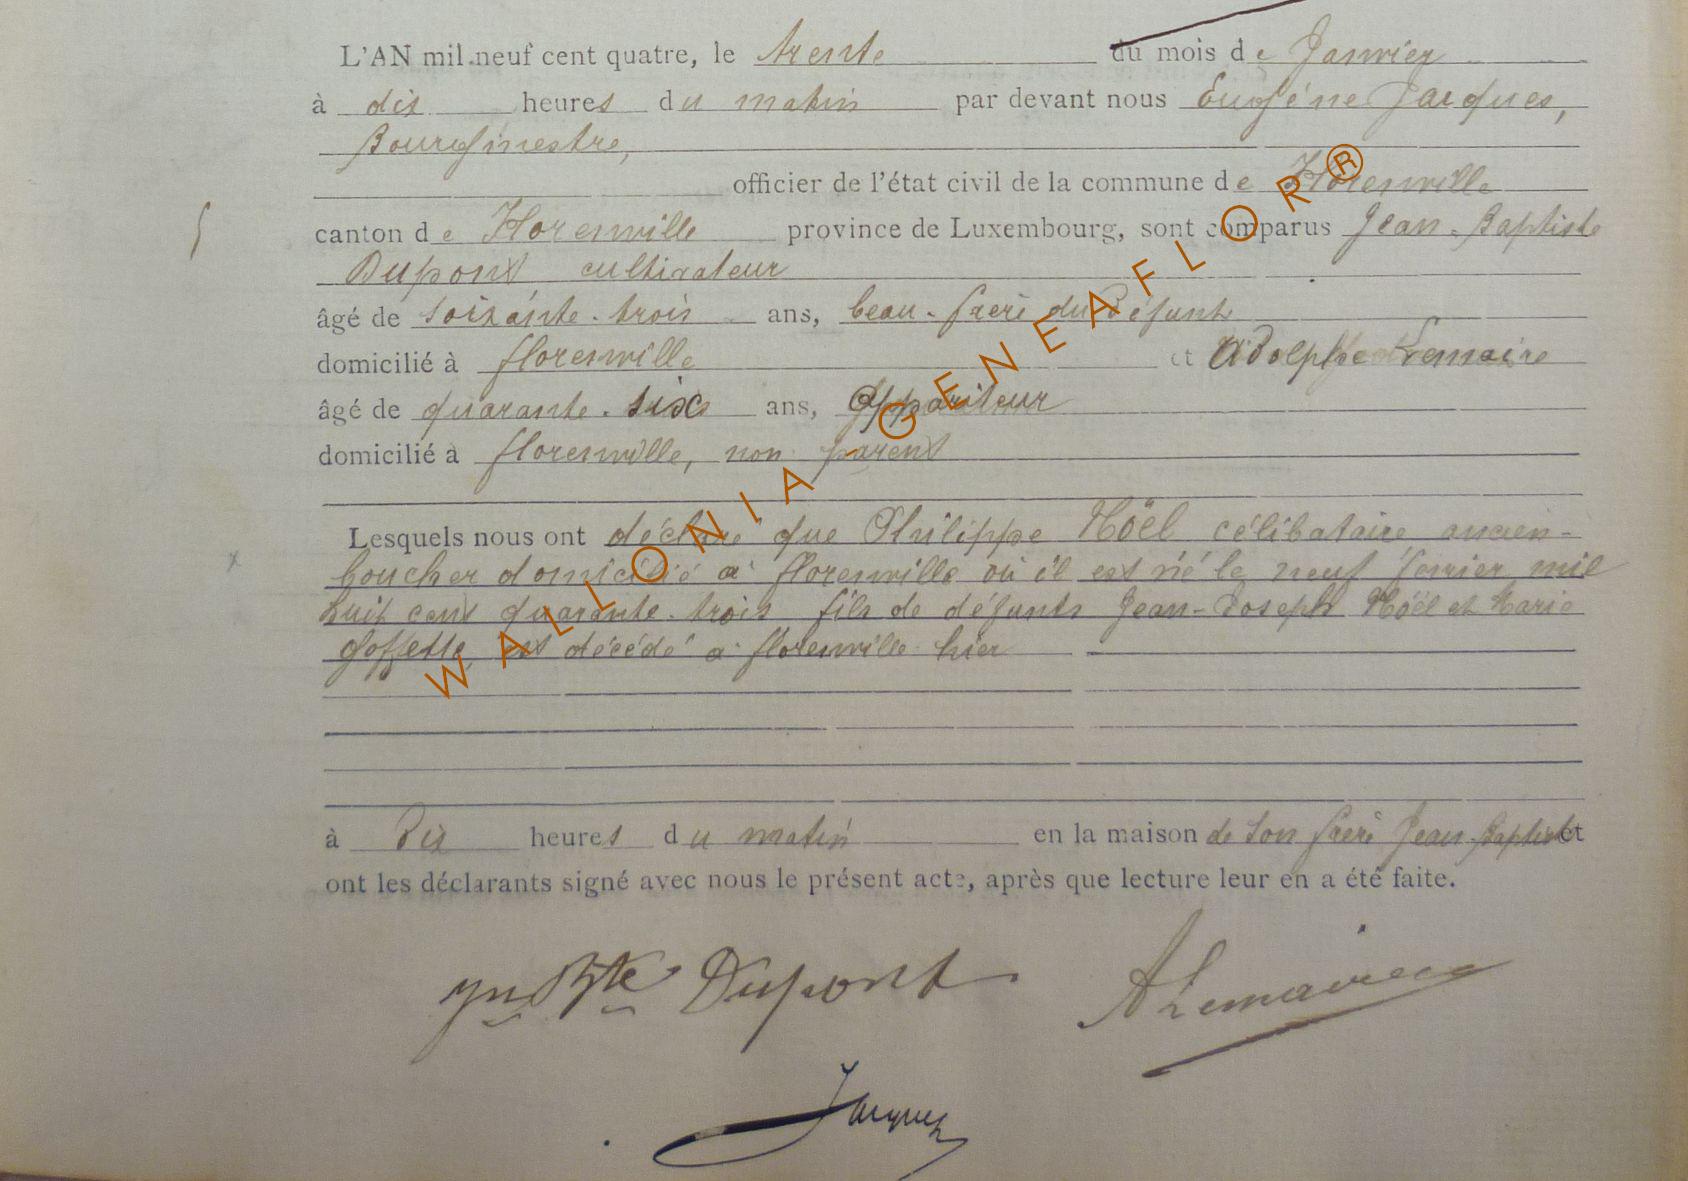 L'AN mil neuf cent quatre, le trente du mois de Janvier
à dix heures du matin par devant nous Eugène Jacques,
Bourgmestre,
officier de l'état civil de la commune de Florenville
canton de Florenville province de Luxembourg, sont comparus Jean-Baptiste
Dupont cultivateur
âgé de soixante-trois ans, beau-frère du défunt
domicilié à florenville et Adolphe Lemaire
âgé de quarante-six ans, Appariteur
domicilié à florenville, non parent
Lesquels nous ont déclaré que Philippe Nöël célibataire ancien
boucher domicilié à florenville où il est né le neuf février mil
huit cent quarante-trois fils de défunts Jean-Joseph Nöël et Marie
Goffette, est décédé à florenville hier
à dix heures du matin en la maison de son frère Jean-Baptiste et
ont les déclarants signé avec nous le présent acte, après que lecture leur en a été faite.
Jn Bte Dupont
A Lemaire
Jacques
WALLONIA-GENEAFLOR®